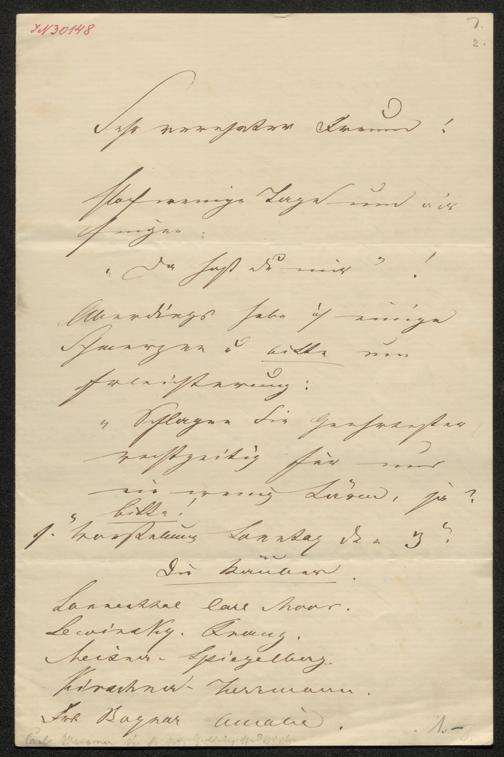 IN 30148
2.
Sehr verehrter Freund!
Noch wenige Tage und wir
singen:
„Da hast du mir"!
Allerdings habe ich einige
Schmerzen u bitte um
Erleichterung:
„Schlagen Sie Geehrtester
rechtzeitig für uns
ein wenig Lärm, ja?
„bitte!
1. Vorstellung Sonntag den 3".
Die Räuber.
Sonnenthal Carl Moor.
Lewinsky. Franz.
Meixner - Spiegelberg.
Kirschner - Herrmann.
Frl Bognar Amalie.
1.-